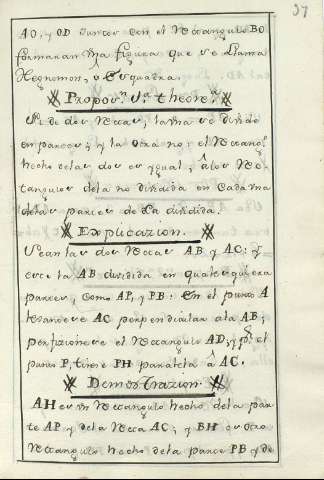 37
AO, y OD juntos con el Rectangulo BO
formaran vna figura que se llama
Hegnomon, o Esquadra.
Propos.n 1.a theore.a
Si de dos Rectas, la vna se divide
en partes; y la otra no: el Rectang.o
hecho delas dos es ygual, â los Rec-
tangulos dela no dividida en cada vna
delas partes de La dividida.
Explicazion.
Sean las dos Rectas AB y AC: y
este la AB dividida en qualesquiera
partes, como AP, y PB: En el punto A
levantese AC perpendicular ala AB;
perfizionese el Rectangulo AD; y p.r el
punto P, tirese PH paralela â AC.
Demostrazion.
AH es vn Rectangulo hecho dela par-
te AP y dela Recta AC; y BH es otro
Rectangulo hecho dela parte PB y de